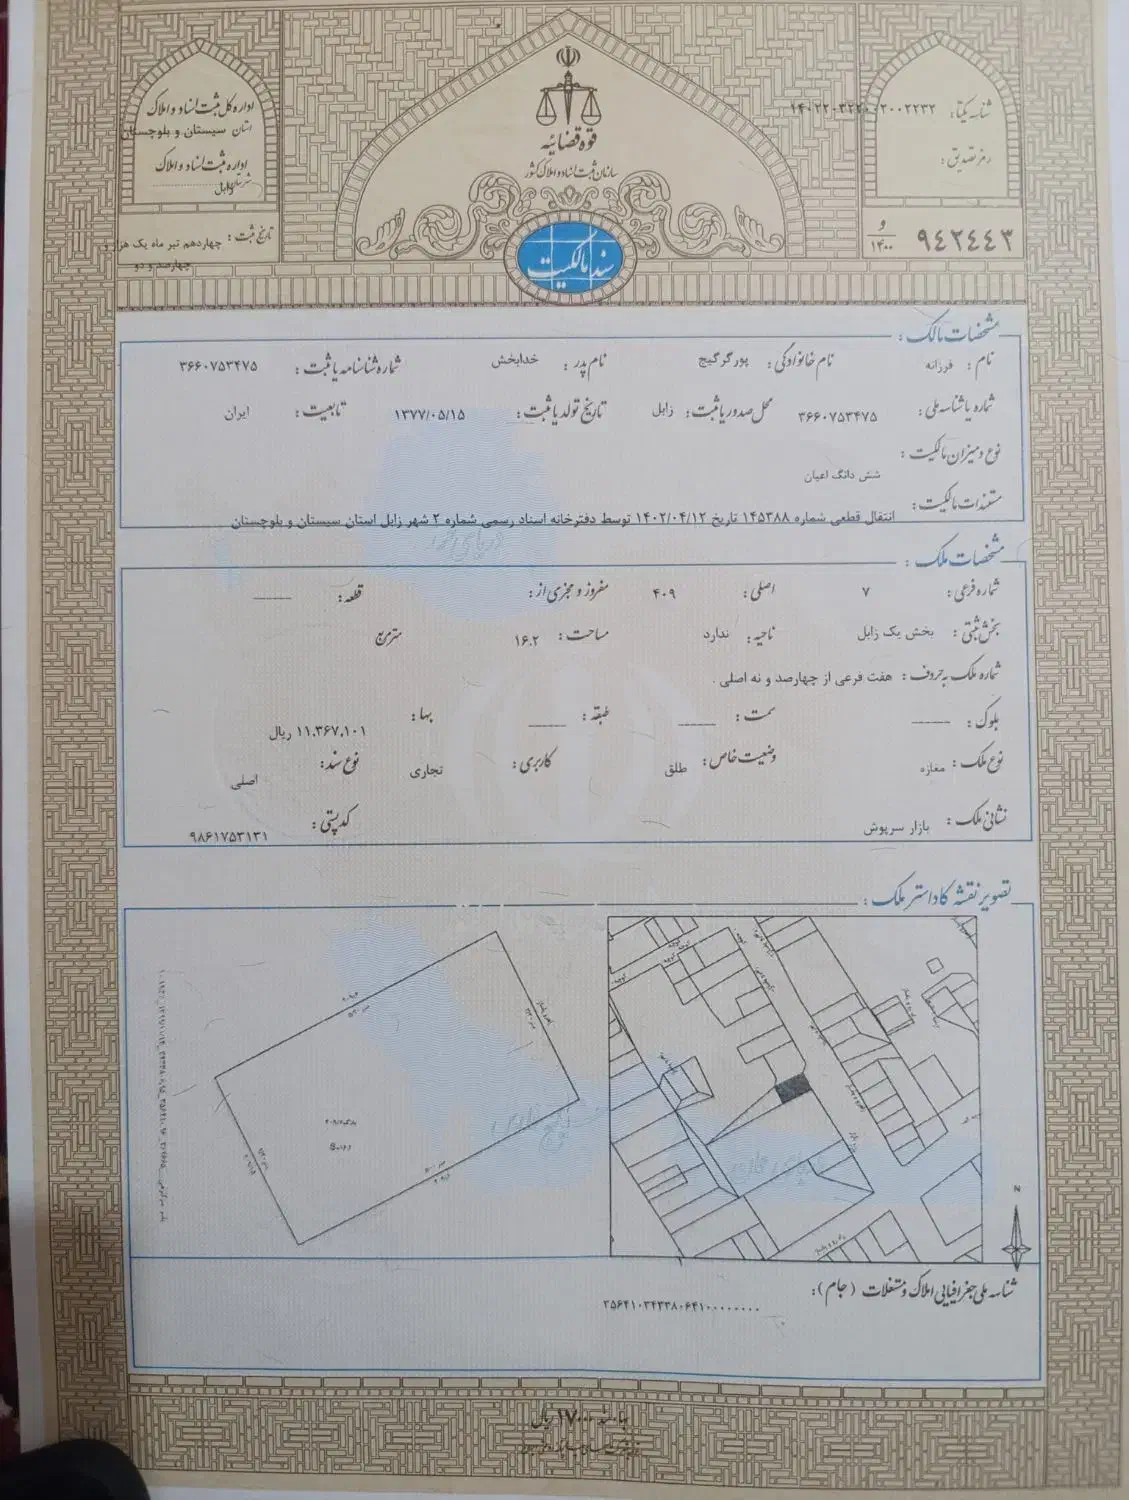 اداره کل ثبت اسناد و املاک
استان سیستان و بلوچستان
اداره ثبت اسناد و املاک
شهرستان زابل
تاریخ ثبت: چهاردهم تیر ماه یک هزار و
چهارصد و دو
قوه قضائیه
سازمان ثبت اسناد و املاک کشور
سند مالکیت
شناسه یکتا:
رمز تصدیق:
۹۴۲۴۴۳ و ۱۴۰۰
مشخصات مالک:
نام: فرزانه نام خانوادگی: پور گرگیج نام پدر: خدابخش شماره شناسنامه یا ثبت: ۳۶۶۰۷۵۳۴۷۵
شماره یا شناسه ملی: ۳۶۶۰۷۵۳۴۷۵ محل صدور یا ثبت: زابل تاریخ تولد یا ثبت: ۱۳۷۷/۰۵/۱۵ تابعیت: ایران
نوع و میزان مالکیت:
شش دانگ اعیان
مستندات مالکیت: انتقال قطعی شماره ۱۴۵۳۸۸ تاریخ ۱۴۰۲/۰۴/۱۲ توسط دفترخانه اسناد رسمی شماره ۲ شهر زابل استان سیستان و بلوچستان
مشخصات ملک:
شماره فرعی: ۷ اصلی: ۴۰۹ مفروز و مجزی از: قطعه:
بخش ثبتی: بخش یک زابل ناحیه: ندارد مساحت: ۱۶.۲ مترمربع
شماره ملک به حروف: هفت فرعی از چهارصد و نه اصلی .
بلوک: سمت: طبقه: بها: ۱۱,۳۶۷,۱۰۱ ریال
نوع ملک: مغازه وضعیت خاص: طلق کاربری: تجاری نوع سند: اصلی
نشانی ملک: بازار سرپوش کدپستی: ۹۸۶۱۷۵۳۱۳۱
تصویر نقشه کاداستر ملک:
N
شناسه ملی جغرافیایی املاک و مستغلات (جام):
بها سند ۱۷۰۰۰۰ ریال